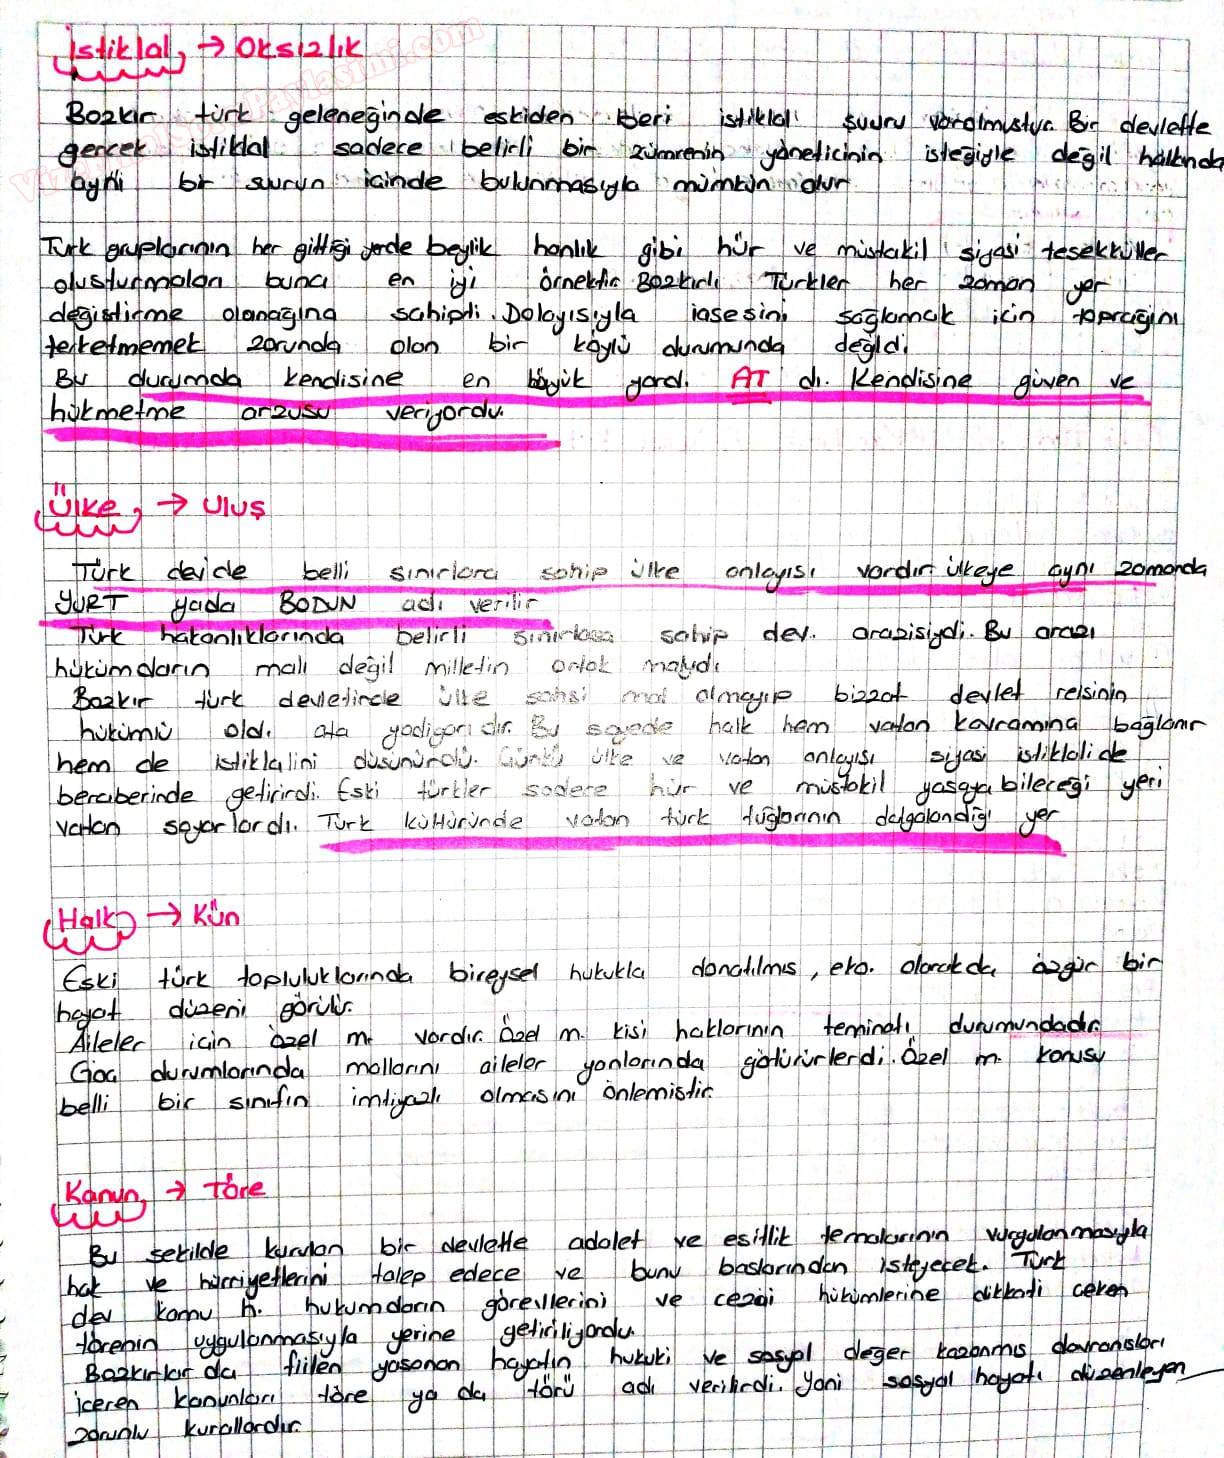 İstiklal → Oksızlık
Bozkır türk geleneğinde eskiden beri istiklal şuuru varolmustur. Bir devlette
gercek istiklal sadece belirli bir zümrenin yöneticinin isteğiyle değil halkında
ayni bir suurun icinde bulunmasıyla mümkün olur
Türk gruplarının her gittiği yerde beylik hanlık gibi hür ve müstakil siyasi tesekküller
olusturmaları buna en iyi örnektir. Bozkırlı Türkler her zaman yer
değistirme olanağına sahipti. Dolayısıyla iasesini sağlamak icin toprağını
terketmemek zorunda olan bir köylü durumunda değildi
Bu durumda kendisine en büyük yard. AT dı. Kendisine güven ve
hükmetme arzusu veriyordu.
Ülke → Uluş
Türk devide belli sınırlara sahip ülke anlayısı vardır ülkeye aynı zamanda
YURT yada BODUN adı verilir
Türk hakanlıklarında belirli sınırlara sahip dev. arazisiydi. Bu arazi
hükümdarın malı değil milletin ortak malıydı
Bozkır türk devletinde ülke sahsi mal olmayıp bizzat devlet reisinin
hükümü old. ata yadigarıdır. Bu sayede halk hem vatan kavramına bağlanır
hem de istiklalini düsünürdü. Cünkü ülke ve vatan anlayısı siyasi istiklalide
beraberinde getirirdi. Eski türkler sadece hür ve müstakil yasayabileceği yeri
vatan sayarlardı. Türk kültüründe vatan türk tuğlarının dalgalandığı yer
Halk → Kün
Eski türk topluluklarında bireysel hukukla donatılmıs, eko. olarakda özgür bir
hayat düzeni görülür.
Aileler icin özel m. vardır. Özel m. kisi haklarının teminatı durumundadır.
Göc durumlarında mallarını aileler yanlarında götürürlerdi. Özel m. konusu
belli bir sınıfın imtiyazlı olmasını önlemistir.
Kanun → Töre
Bu sekilde kurulan bir devlette adalet ve esitlik temalarının vurgulanmasıyla
hak ve hürriyetlerini talep edece ve bunu baslarından isteyecek. Türk
dev kamu h. hukumdarın görevllerini ve cezai hükümlerine dikkati ceken
törenin uygulanmasıyla yerine getiriliyordu.
Bozkırlar da fiilen yasanan hayatın hukuki ve sosyal değer kazanmıs davransları
iceren kanunları töre ya da törü adı verilirdi. Yani sosyal hayatı düzenleyen
zorunlu kurallardır.